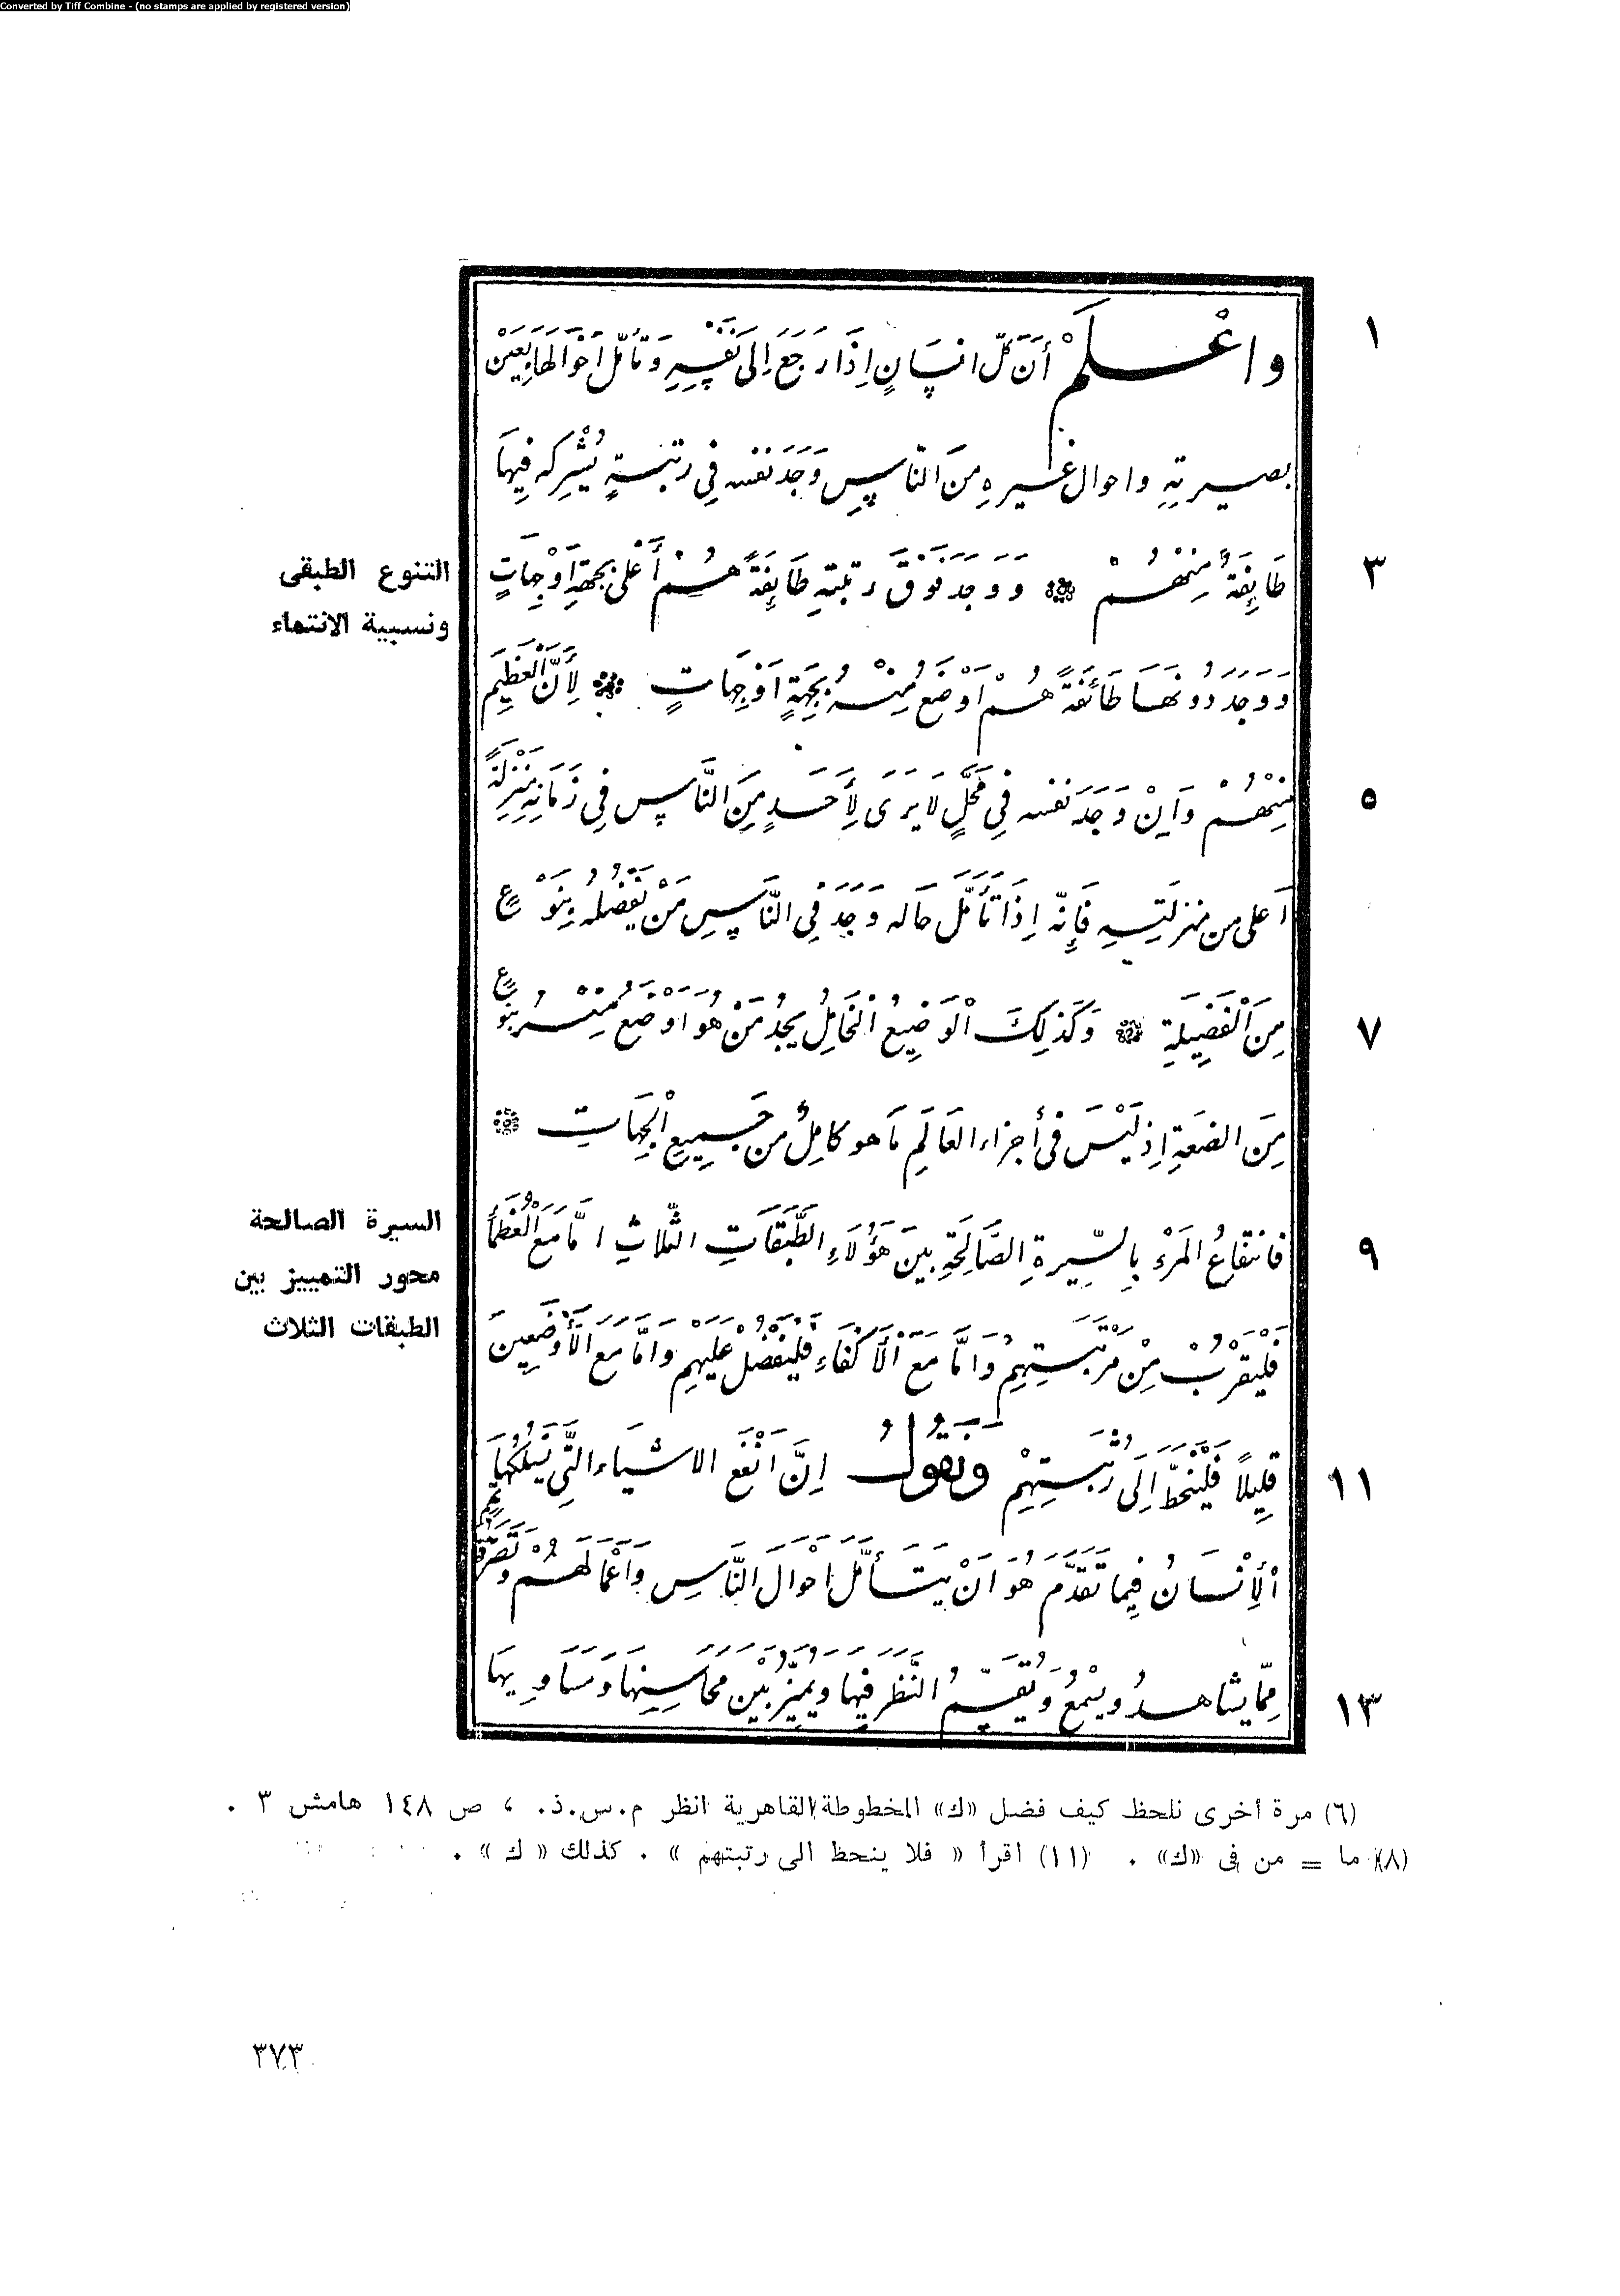 Converted by Tiff Combine - (no stamps are applied by registered version)
١
وَاعْلَمْ أَنَّ كُلَّ انسَانٍ اِذَا رَجَعَ اِلَى نَفْسِهِ وَتَأمَّلَ اَحْوَالَهَا بِعَيْنِ
بصيرتِهِ واحوال غيرهِ مِنَ النَّاسِ وَجَدَ نفسه فِي رتبةٍ يُشْرِكه فِيهَا
٣
طَايِفَةٌ مِنْهُمْ ۞ وَوَجَدَ فَوْقَ رتبتهِ طَايِفَةً هُمْ أَعْلَى بجهةٍ اَوْجِهَاتٍ
التنوع الطبقى
ونسبية الانتماء
وَوَجَدَ دُونَهَا طَائفَةً هُمْ اَوْضَعُ مِنْهُ بِجِهَةٍ اَوْجِهَاتٍ ۞ لِأَنَّ الْعَظِيمَ
٥
مِنْهُمْ وَاِنْ وَجَدَ نفسه فِي مَحَلٍّ لَا يَرَى لِأَحَدٍ مِنَ النَّاسِ فِي زَمَانِهِ مَنْزِلَةً
اَعلى من منزلتِهِ فَاِنَّه اِذَا تَأَمَّلَ حَاله وَجَدَ فِي النَّاسِ مَنْ يَفْضُلهُ بِنَوْعٍ
٧
مِنَ الْفَضِيلَةِ ۞ وَكَذلِكَ الْوَضِيعُ الْخَامِلُ يَجِدُ مَنْ هُوَ اَوْضَعُ مِنْهُ بِنَوْعٍ
مِنَ الضعَةِ اِذ لَيْسَ فى أجزاء العَالَمِ مَا هو كامِلٌ من جَمِيعِ الْجِهَاتِ ۞
٩
فانتفاعُ المَرْءِ بِالسِّيرةِ الصَّالِحَةِ بينَ هَؤُلَاءِ الطَّبَقَاتِ الثّلاثِ امَّا مَعَ الْعُظَمَاءِ
السيرة الصالحة
محور التمييز بين
الطبقات الثلاث
فَلْيَقْرُبْ مِنْ مَرْتَبَتِهِمُ وَامَّا مَعَ الْأَكْفَاءِ فَلْيَفْضُلْ عَلَيْهِمْ وَامَّا مَعَ الْأَوْضَعِينَ
١١
قليلاً فَلْيَنْحَطَّ اِلَى رُتْبَتِهِمْ وَنَقُولُ اِنَّ اَنْفَعَ الاشياء الَّتِي يَسْلُكُهَا
الْاِنْسَانُ فِيمَا تَقَدَّمَ هُوَ اَنْ يَتَأَمَّلَ اَحْوَالَ النَّاسِ وَاَعْمَالَهُمْ وَتَصَرُّفَاتِهِمْ
١٣
مِمّا يشاهدُ ويسْمعُ وَيُقَسِّمُ النَّظَرَ فِيهَا وَيُمَيِّزُ بَيْنَ مَحَاسِنِهَا وَمَسَاوِيهَا
(٦) مرة أخرى نلحظ كيف فضل «ك» المخطوطة القاهرية انظر م.س.ذ. ، ص ١٤٨ هامش ٣ .
(٨) ما = من فى «ك» . (١١) اقرأ « فلا ينحظ الى رتبتهم » . كذلك « ك » .
٣٧٣